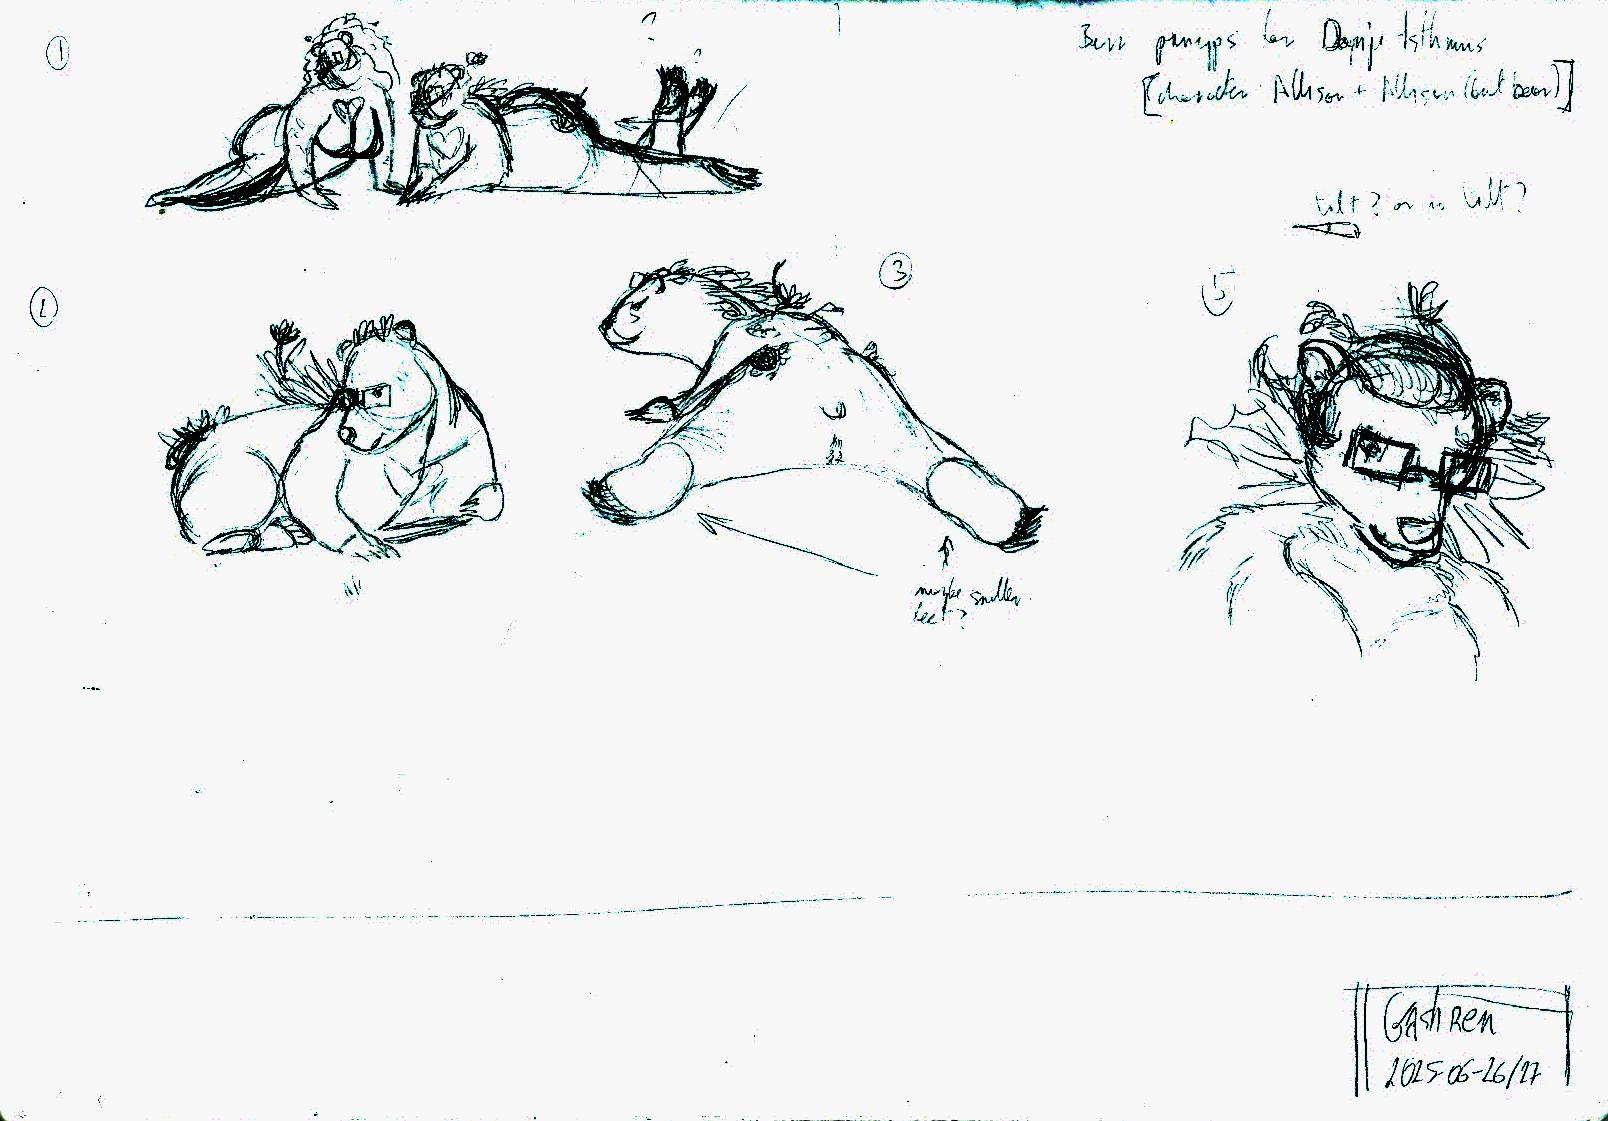 ①
?
?
Bear pinups for
[character: Allison + Allison (but bear)]
tilt? or no tilt?
②
③
5
maybe smaller
feet?
Gashren
2025-06-26/27